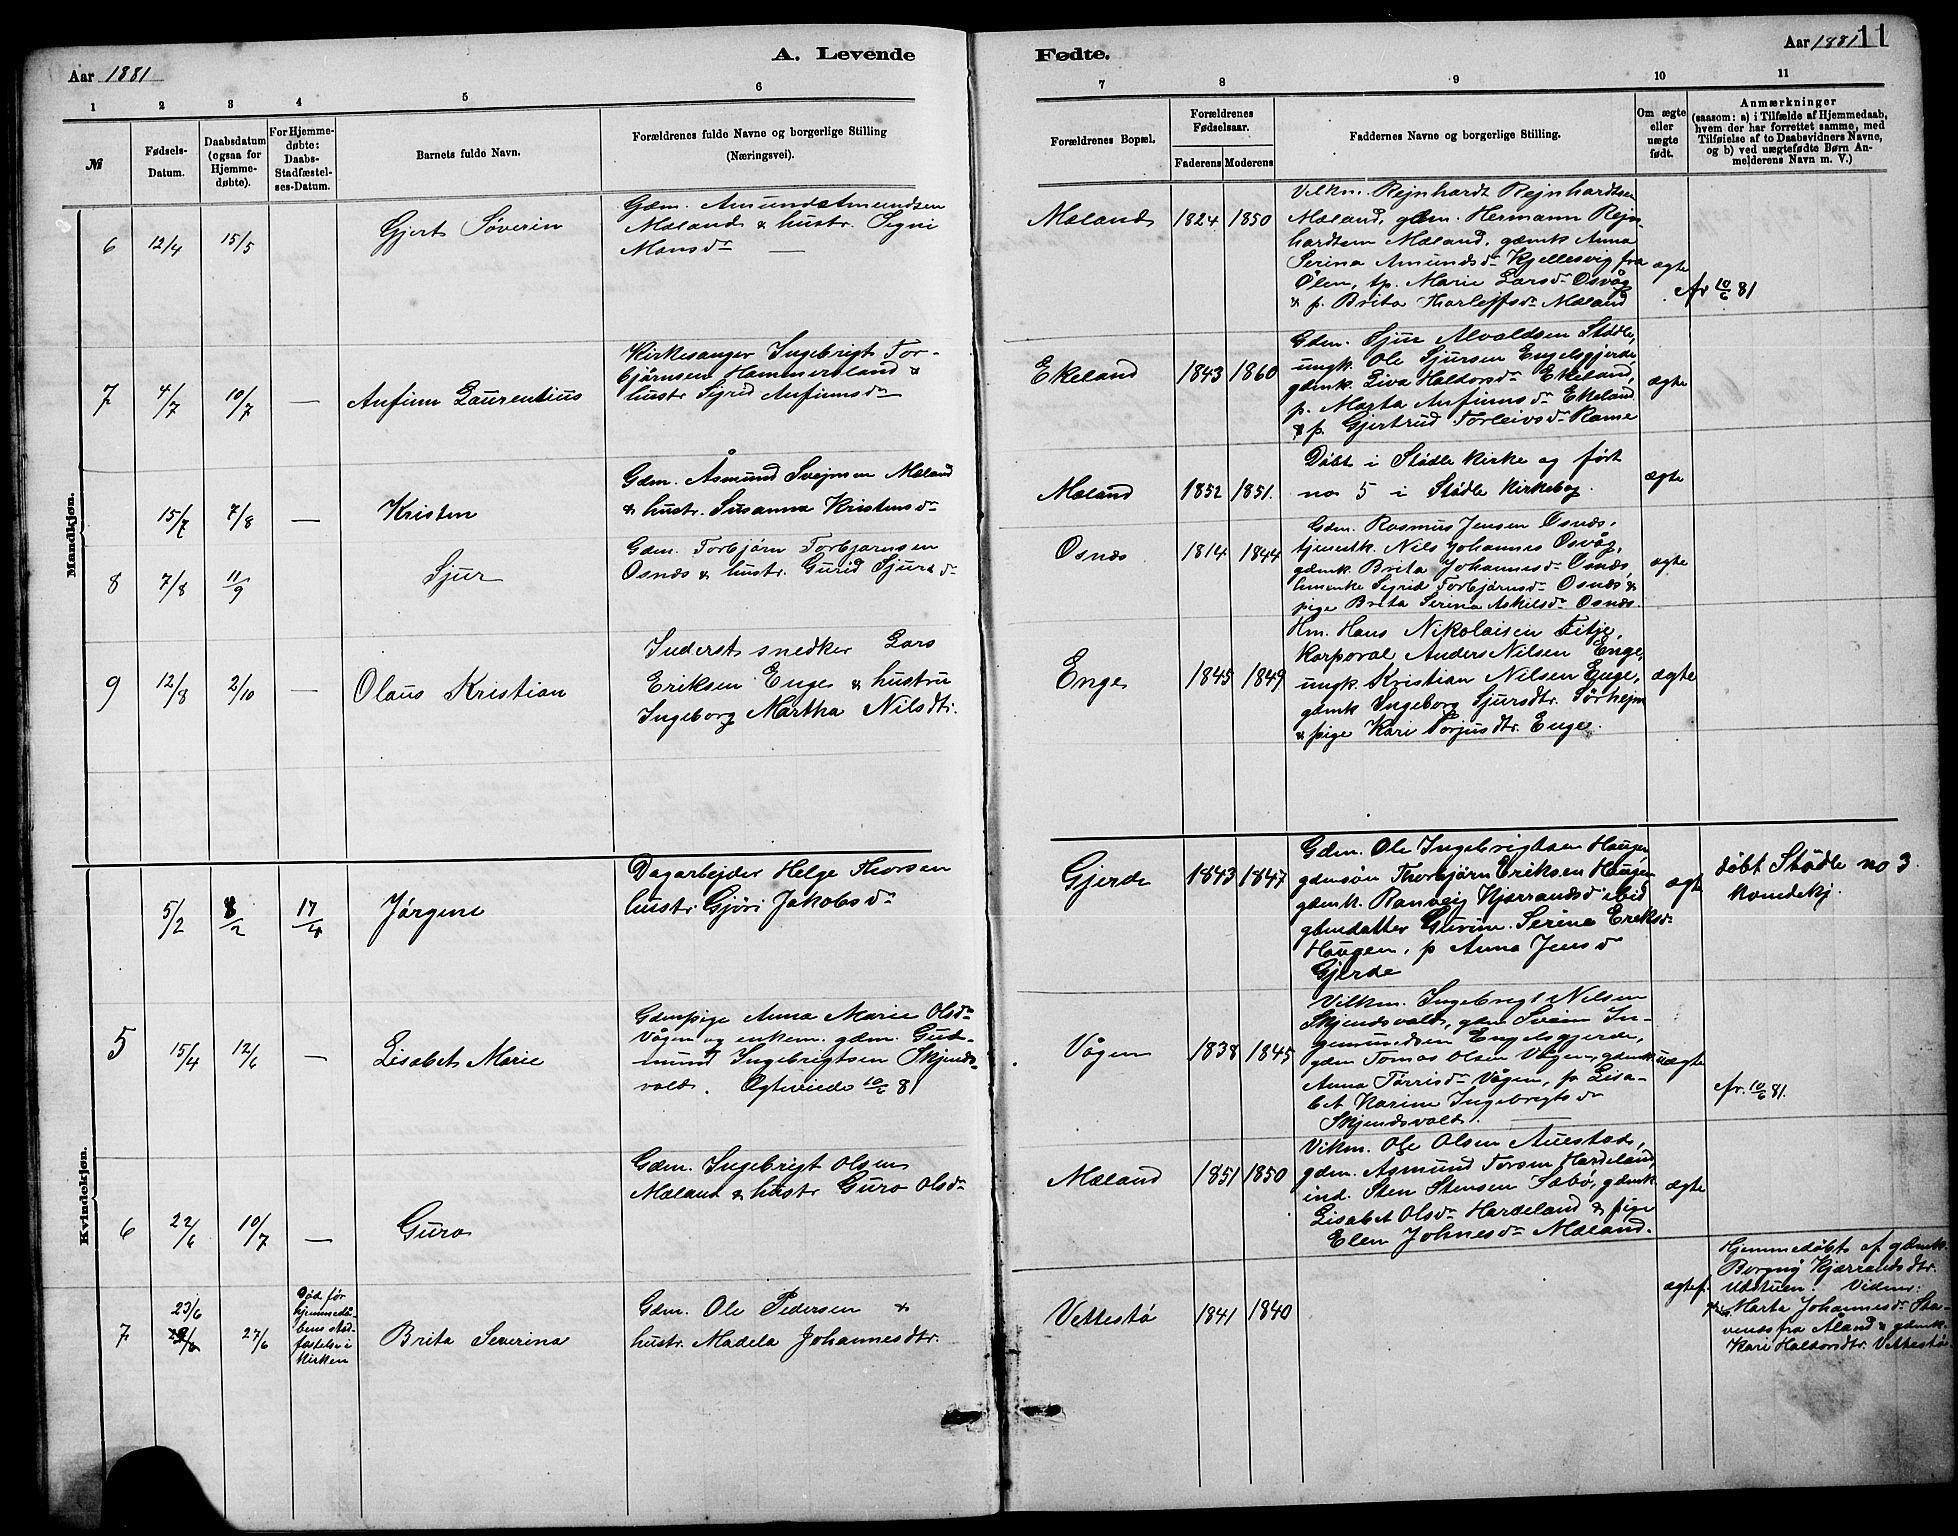 Aar 1881
A. Levende
Fødte.
Aar 1881
11
1
2
3
4
5
6
7
8
9
10
11
№
Fødsels-
Datum.
Daabsdatum
(ogsaa for
Hjemme-
døbte).
For Hjemme-
døbte:
Daabs-
Stadfæstel-
ses-Datum.
Barnets fulde Navn.
Forældrenes fulde Navne og borgerlige Stilling
(Næringsvei).
Forældrenes Bopæl.
Forældrenes
Fødselsaar.
Faderens
Moderens
Faddernes Navne og borgerlige Stilling.
Om ægte
eller
uægte
født.
Anmærkninger
(saasom: a) i Tilfælde af Hjemmedaab,
hvem der har forrettet samme, med
Tilføielse af to Daabsvidners Navne,
og b) ved uægtefødte Børn An-
melderens Navn m. V.)
Mandkjøn.
6
12/4
15/5
Gjert Søverin
Gdm. Amund Amundsen
Mæland & hustr. Signi
Monsd.
Mæland
1824
1850
Vilkm. Rejnhardt Rejnhardtsen
Mæland, gdm. Hermann Rejn-
hardtsen Mæland, gdmk Anna
Serina Amundsd. Kjellesvig fra
Ølen, tp. Marie Larsd. Osvåg
& p. Brita Tharleffsd. Mæland
ægte
Av 10/6 81
7
4/7
10/7
—
Anfinn Laurentius
Kirkesanger Ingebrigt Tor-
bjørnsen Hammersland &
hustr Sigrid Anfinnsd.
Ekeland
1843
1860
Gdm. Sjur Alvaldsen Stødle,
ungk. Ole Sjursen Engelsgjerde
gdmk. Liva Haldorsd. Ekeland,
p. Marta Anfinnsd. Ekeland
& p. Gjertrud Torleivsd. Rame
ægte
15/7
7/8
—
Kristen
Gdm. Åsmund Svejnsen Mæland
& hustr. Susanna Kristensd.
Mæland
1852
1851.
Døbt i Stødle kirke og ført
no 5 i Stødle Kirkebog.
ægte
8
7/8
11/9
Sjur
Gdm. Torbjørn Torbjørnsen
Osnæs & hustr. Gurid Sjursd.
Osnæs
1814
1844
Gdm. Rasmus Jensen Osnæs,
tjenestk. Nils Johannes Osvåg,
gdmk. Brita Johannesd. Osnæs,
hmenke Sigrid Torbjørnsd. Osnæs &
pige Brita Serina Askilsd. Osnæs.
ægte
9
12/8
2/10
—
Olaus Kristian
Inderst snedker Lars
Eriksen Enge & hustru
Ingeborg Martha Nilsdtr.
Enge
1845
1849
Hm. Hans Nikolaisen Fitje,
Korporal Anders Nilsen Enge,
ungk. Kristian Nilsen Enge,
gdmk Ingeborg Sjursdtr. Sørhejm
& pige Kari Torjusdtr. Enge.
ægte
Kvindekjøn.
5/2
8/2
17/4
Jørgine
Dagarbejder Helge Thorsen
hustr. Gjøri Jakobsd.
Gjerde
1843
1847
Gdm. Ole Ingebrigtsen Haugen
gdmsøn Thorbjørn Eriksen Haugen
gdmk. Ranveig Kjærrandsd. ibid
gdmdatter Gurine Serine Eriksd.
Haugen, p Anna Jensd
Gjerde
ægte
døbt Stødle no 3
kvindekj.
5
15/4
12/6
—
Lisabet Marie
Gdmpige Anna Marie Olsd.
Vågen og enkem. gdm. Gud-
mund Ingebrigtsen Skjends-
vold. Ægteviede 10/6 81
Vågen
1838
1845
Vilkm. Ingebrigt Nilsen
Skjendsvold, gdm Svein In-
gemundsen Engelsgjerde,
gdm Tomas Olsen Vågen, gdmk
Anna Tørrisd. Vågen, p. Lisa-
bet Karine Ingebrigtsd
Skjendsvold.
uægte
Av. 10/6 81.
6
22/6
10/7
—
Guro
Gdm. Ingebrigt Olsen
Mæland & hustr Guro Olsd.
Mæland
1851
1850
Vikm. Ole Olsen Auestad,
gdm. Asmund Torsen Hardeland,
ind. Sten Stensen Sæbø, gdmk.
Lisabet Olsd. Hardeland & pige
Elen Johnesd. Mæland.
ægte
7
23/6
27/6
Død før
hjemmedå-
bens stad-
fæstelse i
Kirken
Brita Severina
Gdm. Ole Pedersen &
hustr. Madela Johannesdtr.
Vettestø
1841
1840
ægtef.
Hjemmedøbt af gdmk.
Borgny Kjærrandsdtr.
Udstuen. Vidner:
Marta Johannesd. Sta-
venæs fra Åland & gdmk.
Kari Haldorsdtr. Vettestø.